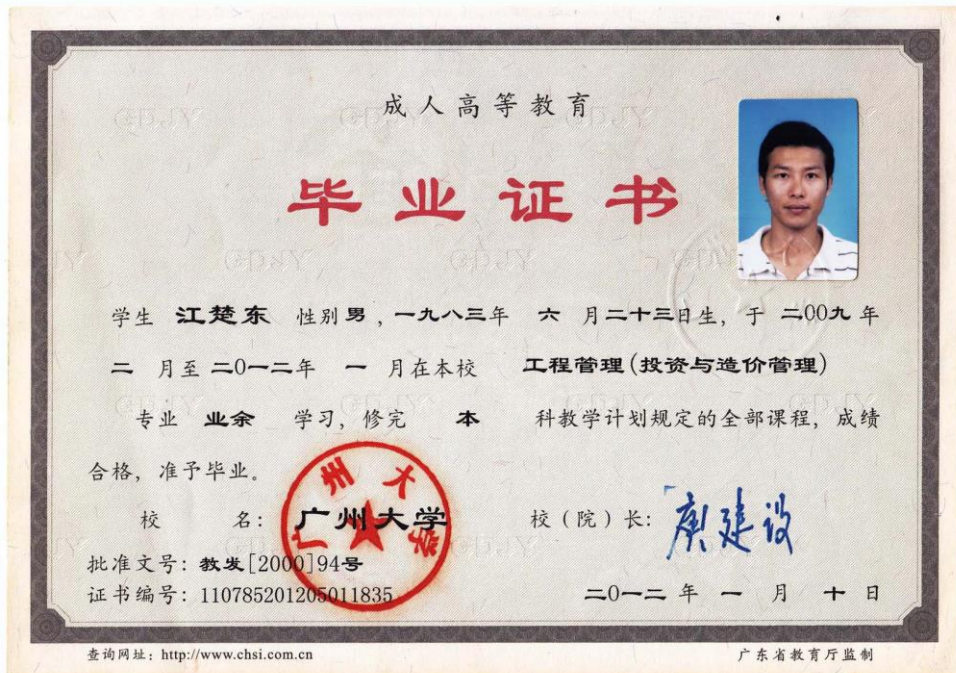 成人高等教育
毕业证书
学生 江楚东 性别 男 , 一九八三年 六 月二十三日生, 于 二00九 年
二 月至 二0一二年 一 月在本校 工程管理(投资与造价管理)
专业 业余 学习, 修完 本 科教学计划规定的全部课程, 成绩
合格, 准予毕业。
广州大学
校 名: 广州大学 校(院)长: 庾建设
批准文号: 教发[2000]94号
证书编号: 110785201205011835 二0一二 年 一 月 十 日
查询网址: http://www.chsi.com.cn 广东省教育厅监制